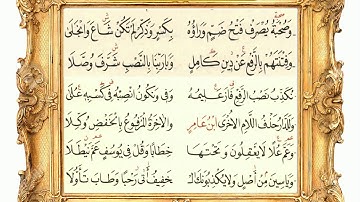 وَصُحْبَةُ يُصْرَفْ فَتْحُ ضَمٍّ وَرَاؤُهُ بِكَسْرٍ وَذَكِّرْ لَمْ تَكُنْ شَاعَ وَانْجَلَى
وَفِتْنَتُهُمْ بِالرَّفْعِ عَنْ دِينِ كَامِلٍ وَبَا رَبِّنَا بِالنَّصْبِ شَرَّفَ وُصَّلَا
نُكَذِّبُ نَصْبُ الرَّفْعِ فَازَ عَلِيمُهُ وَفِي وَنَكُونُ انْصِبْهُ فِي كَسْبِهِ عُلَى
وَلَلدَّارُ حَذْفُ اللَّامِ الاُخْرَى ابْنُ عَامِرٍ وَالآخِرَةُ الْمَرْفُوعُ بِالْخَفْضِ وُكِّلَا
وَعَمَّ عُلًا لَا يَعْقِلُونَ وَتَحْتَهَا خِطَابًا وَقُلْ فِي يُوسُفٍ عَمَّ نَيْطَلَا
وَيَاسِينَ مِنْ أَصْلٍ وَلَا يُكْذِبُونَكَ الْ خَفِيفُ أَتَى رُحْبًا وَطَابَ تَأَوُّلَا